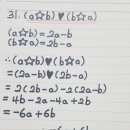 31. (a☆b)♥(b☆a)
(a☆b)=2a-b
(b☆a)=2b-a
∴(a☆b)♥(b☆a)
=(2a-b)♥(2b-a)
=2(2b-a)-2(2a-b)
=4b-2a-4a+2b
=-6a+6b